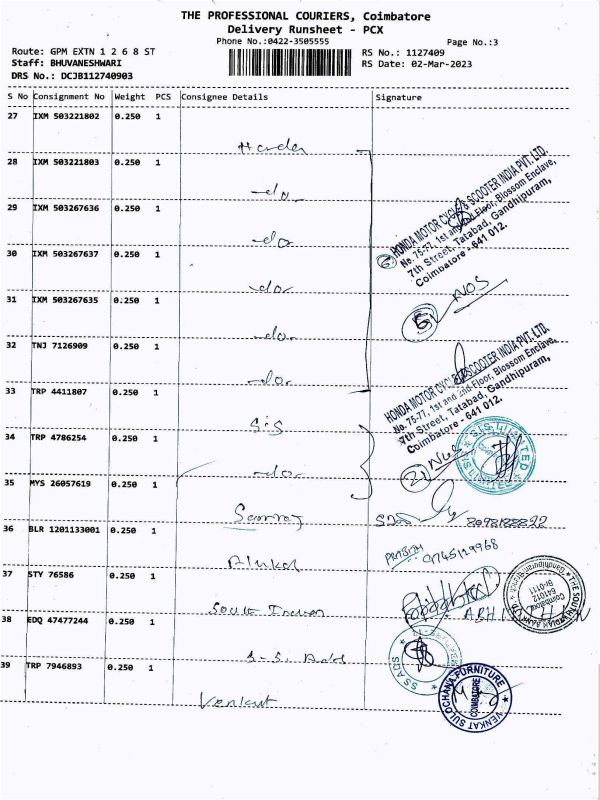 THE PROFESSIONAL COURIERS, Coimbatore
Delivery Runsheet - PCX
Phone No.:0422-3505555
Page No.:3
Route: GPM EXTN 1 2 6 8 ST
RS No.: 1127409
Staff: BHUVANESHWARI
RS Date: 02-Mar-2023
DRS No.: DCJB112740903
S No Consignment No Weight PCS Consignee Details Signature
27 IXM 503221802 0.250 1
Honda
28 IXM 503221803 0.250 1
-do-
29 IXM 503267636 0.250 1
-do-
30 IXM 503267637 0.250 1
-do-
31 IXM 503267635 0.250 1
-do-
32 TNJ 7126909 0.250 1
-do-
33 TRP 4411807 0.250 1
SiS
34 TRP 4786254 0.250 1
-do-
35 MYS 26057619 0.250 1
36 BLR 1201133001 0.250 1
37 STY 76586 0.250 1
South Indian
38 EDQ 47477244 0.250 1
S-S. Ads
39 TRP 7946893 0.250 1
Venkat
HONDA MOTOR CYCLE & SCOOTER INDIA PVT. LTD.
No. 75-77, 1st and 2nd Floor, Blossom Enclave,
7th Street, Tatabad, Gandhipuram,
Coimbatore - 641 012.
6 NOS
HONDA MOTOR CYCLE & SCOOTER INDIA PVT. LTD.
No. 75-77, 1st and 2nd Floor, Blossom Enclave,
7th Street, Tatabad, Gandhipuram,
Coimbatore - 641 012.
2 Nos
S.I.S. LIMITED
9745129968
THE SOUTH INDIAN BANK LTD.
Gandhipuram Branch
Coimbatore
641012
Br-0111
SS ADS
VENKAT SULOCHANA FURNITURE
COIMBATORE